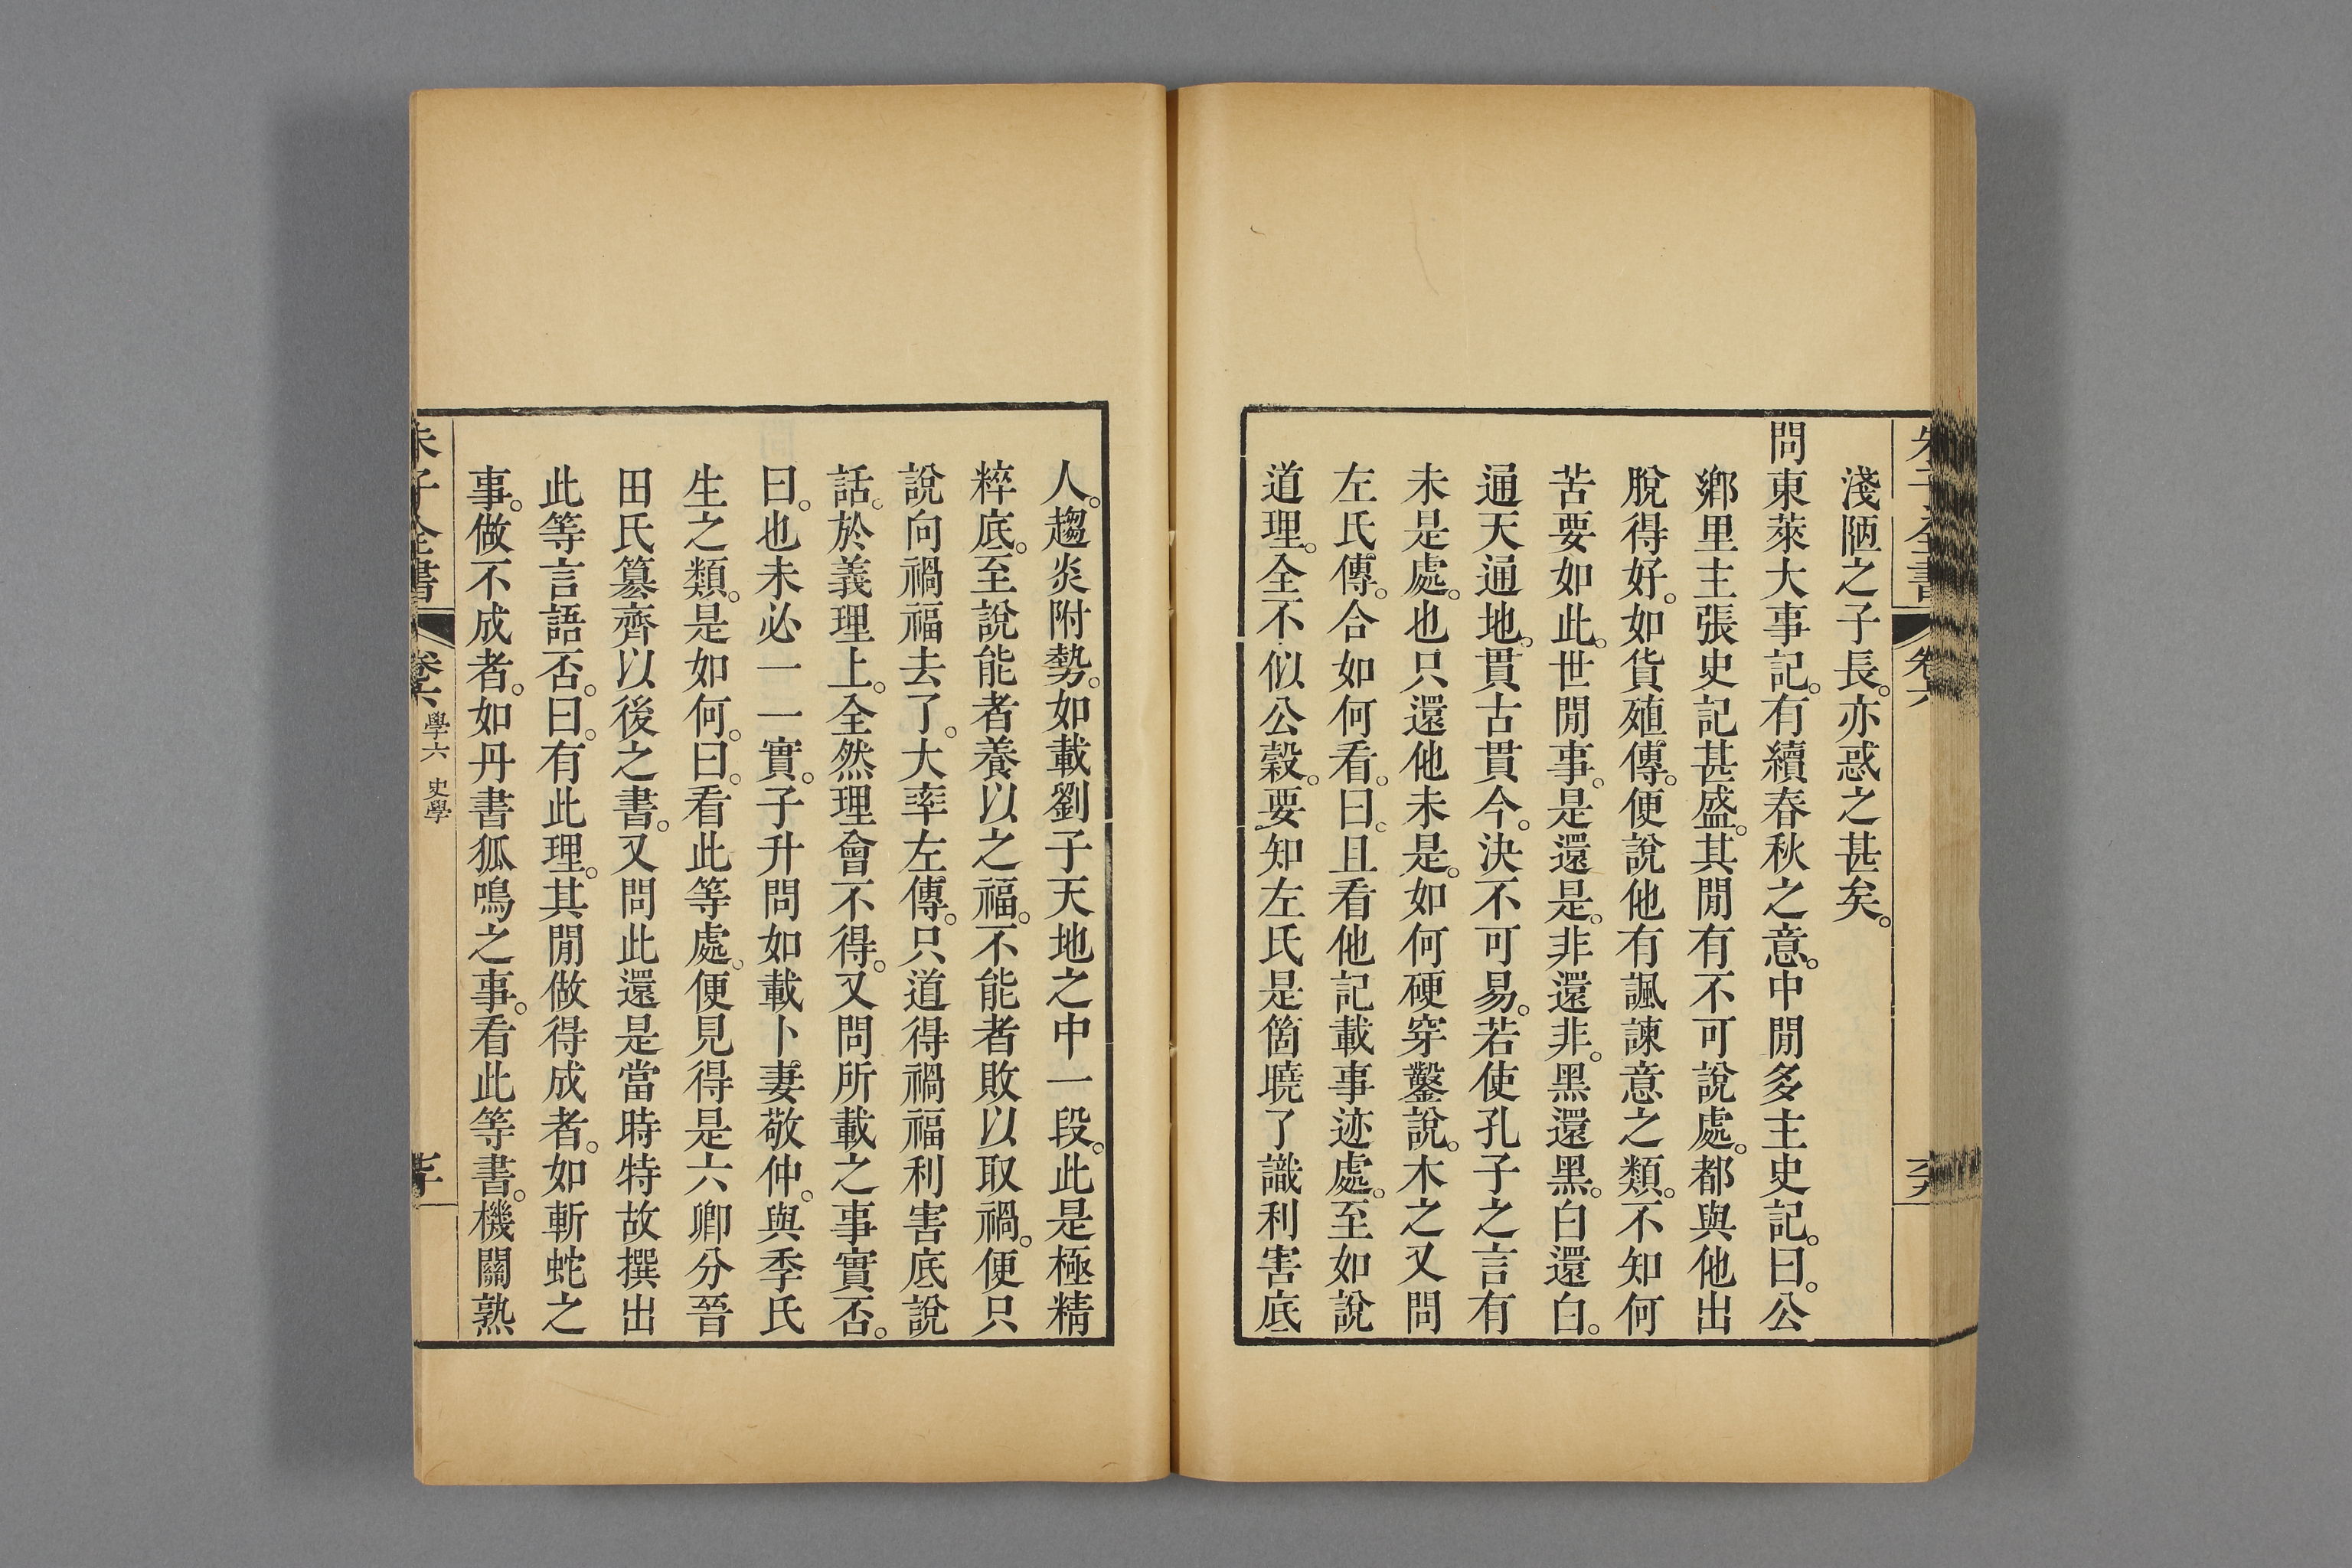 朱子全書 卷六
淺陋之子長。亦惑之甚矣。
問東萊大事記。有續春秋之意。中閒多主史記。曰。公
鄉里主張史記甚盛。其閒有不可說處。都與他出
脫得好。如貨殖傳。便說他有諷諫意之類。不知何
苦要如此。世閒事。是還是。非還非。黑還黑。白還白。
通天通地。貫古貫今。決不可易。若使孔子之言有
未是處。也只還他未是。如何硬穿鑿說。木之又問
左氏傳。合如何看。曰。且看他記載事迹處。至如說
道理。全不似公穀。要知左氏是箇曉了識利害底
人。趨炎附勢。如載劉子天地之中一段。此是極精
粹底。至說能者養以之福。不能者敗以取禍。便只
說向禍福去了。大率左傳。只道得禍福利害底說
話。於義理上。全然理會不得。又問所載之事實否。
曰。也未必一一實。子升問如載卜妻敬仲。與季氏
生之類。是如何。曰。看此等處。便見得是六卿分晉
田氏篡齊以後之書。又問此還是當時特故撰出
此等言語否。曰。有此理。其閒做得成者。如斬蛇之
事。做不成者。如丹書狐鳴之事。看此等書。機關熟
朱子全書 卷六 學六 史學